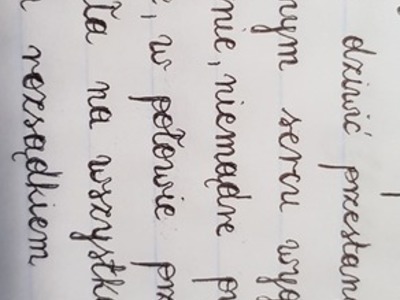 dziwić przestan
nym sercu wyg
nie, niemądre p
, w połowie prz
ła na wszystk
rozsądkiem